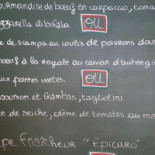 ourmandise de bœuf en carpaccio, toma
zzarella di bufala OU
e de scampis au coulis de poivrons doux
œuf à la royale au caviar d'auberg
ux pointes vertes. OU
et Gambas, tagliolini
de seiche, crème de tomates au ma
pe Fraîcheur "Epicuro"